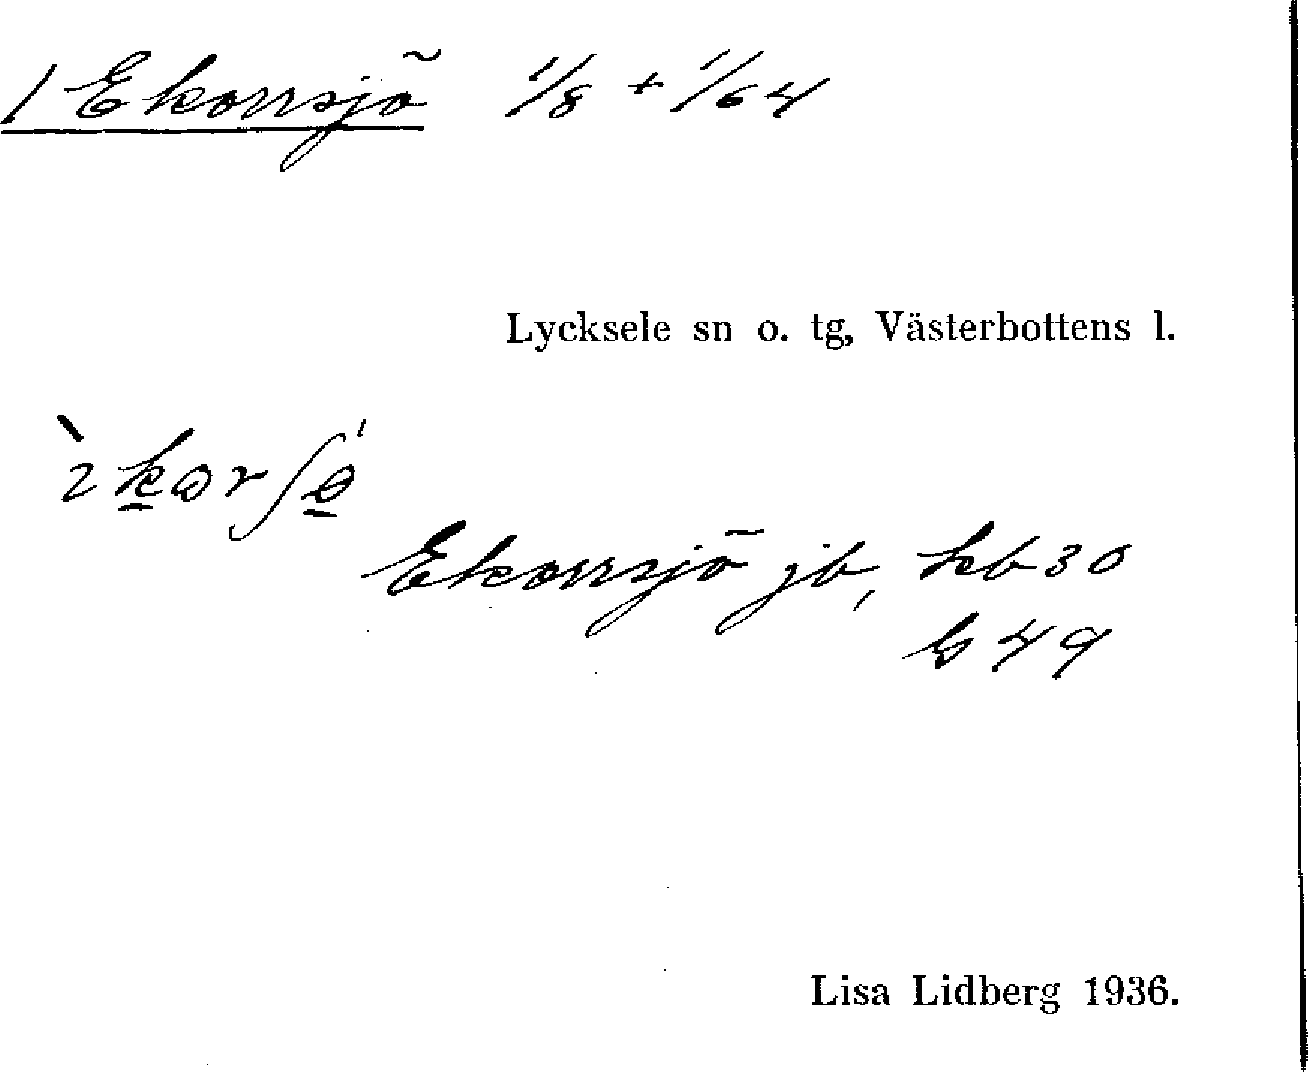 1 Ekorrsjö 1/8 + 1/64
Lycksele sn o. tg, Västerbottens l.
Ekorrsjö jb, kb 30
G 49
Lisa Lidberg 1936.